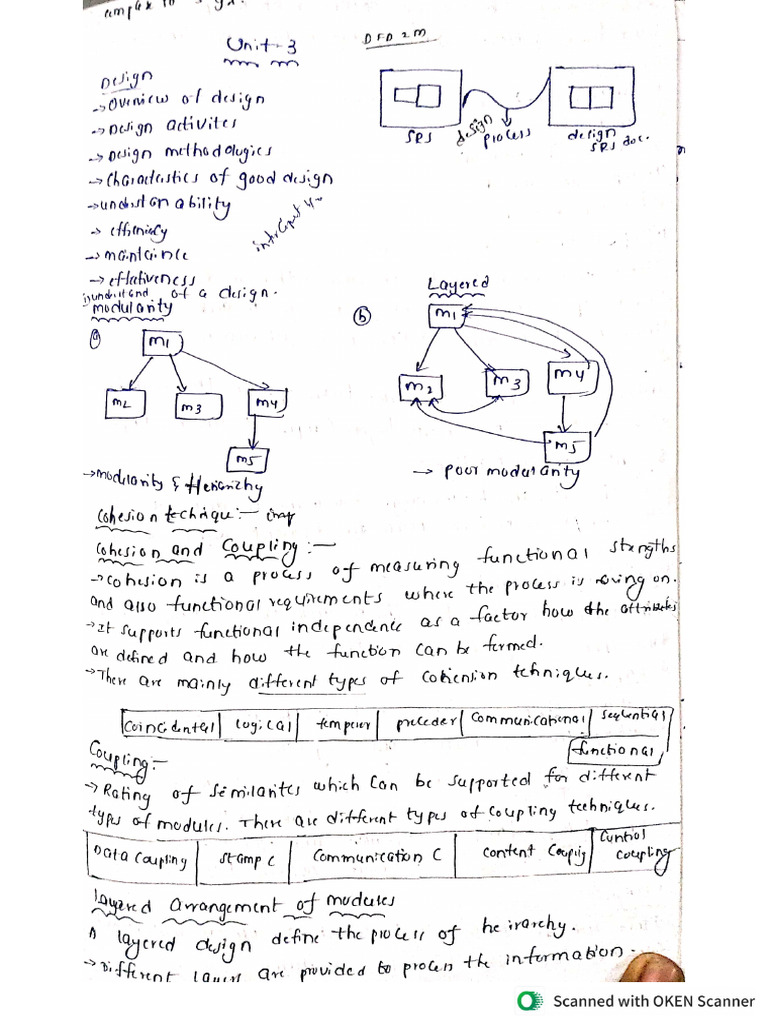 Unit-3
DFD 2M
Design
→ Overview of design
→ Design activites
→ Design methodologies
→ Charactestics of good design
→ undestanability
→ efficiency
→ maintaince
→ effectiveness
understand of a design.
SRS
design process
design
SRS doc.
modularity
(a)
m1
m2
m3
m4
m5
→ modularity & Heriarchy
Layered
(b)
m1
m2
m3
m4
m5
→ poor modularity
Cohesion technique:- imp
Cohesion and Coupling:-
→ Cohesion is a process of measuring functional strengths
and also functional requirements where the process is going on.
→ It supports functional independence as a factor how the attributes
are defined and how the function can be formed.
→ There are mainly different types of cohension techniques.
Coincidental | logical | | | Communicational | sequential
functional
Coupling:-
→ Rating of similarites which can be supported for different
types of modules. There are different types of coupling techniques.
Data Coupling | stamp c | Communication C | content Coupling | Control Coupling
layered arrangement of modules
A layered design define the process of heirarchy.
→ Different layers are provided to process the information.
Scanned with OKEN Scanner